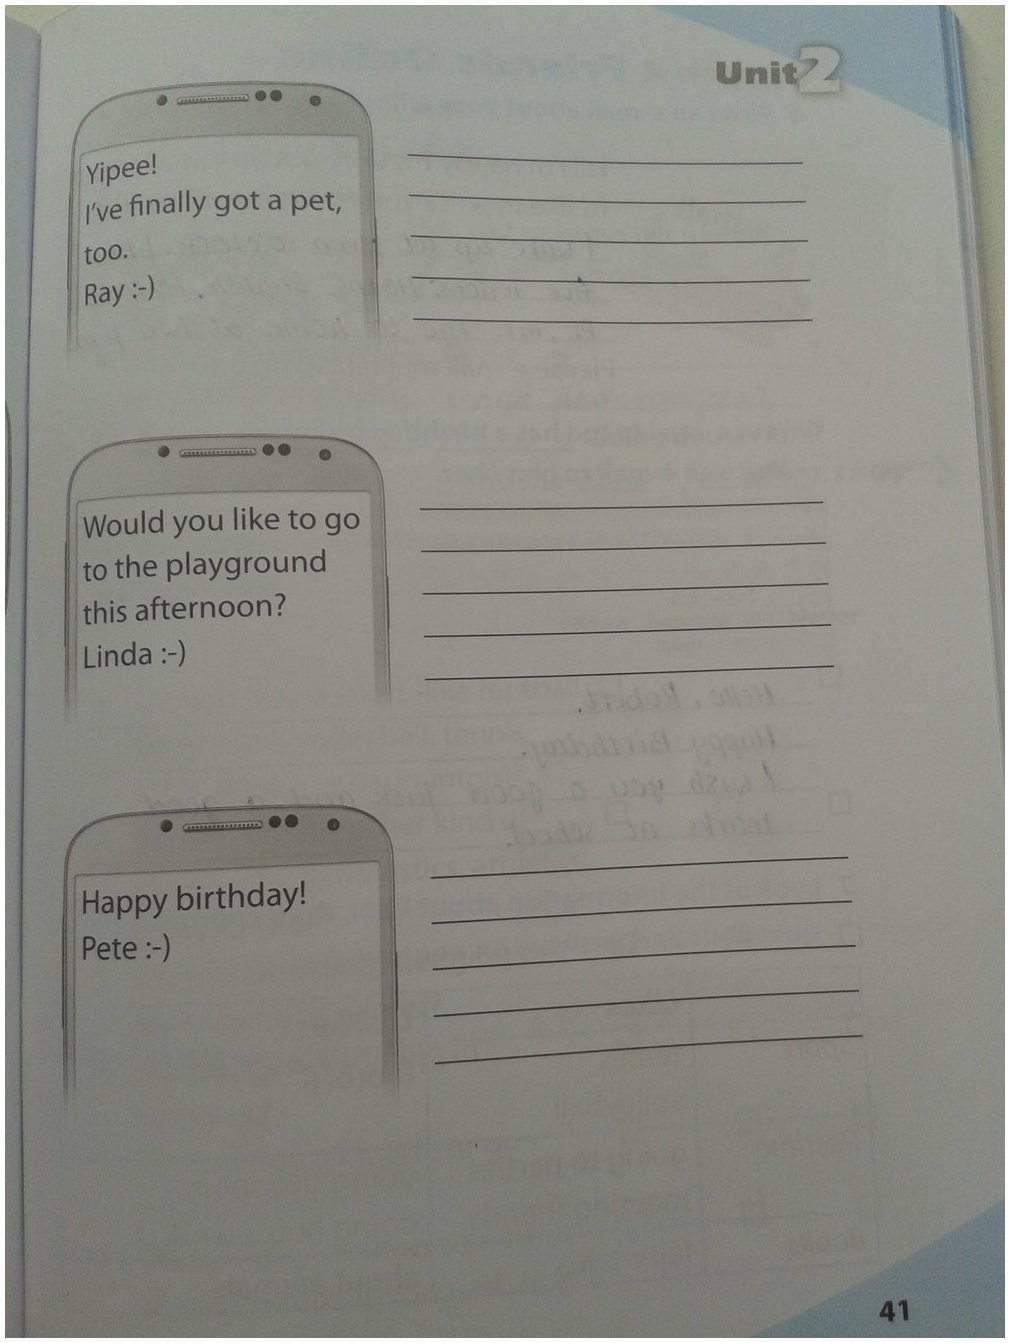 Unit 2
Yipee!
I've finally got a pet,
too.
Ray :-)
Would you like to go
to the playground
this afternoon?
Linda :-)
Happy birthday!
Pete :-)
41